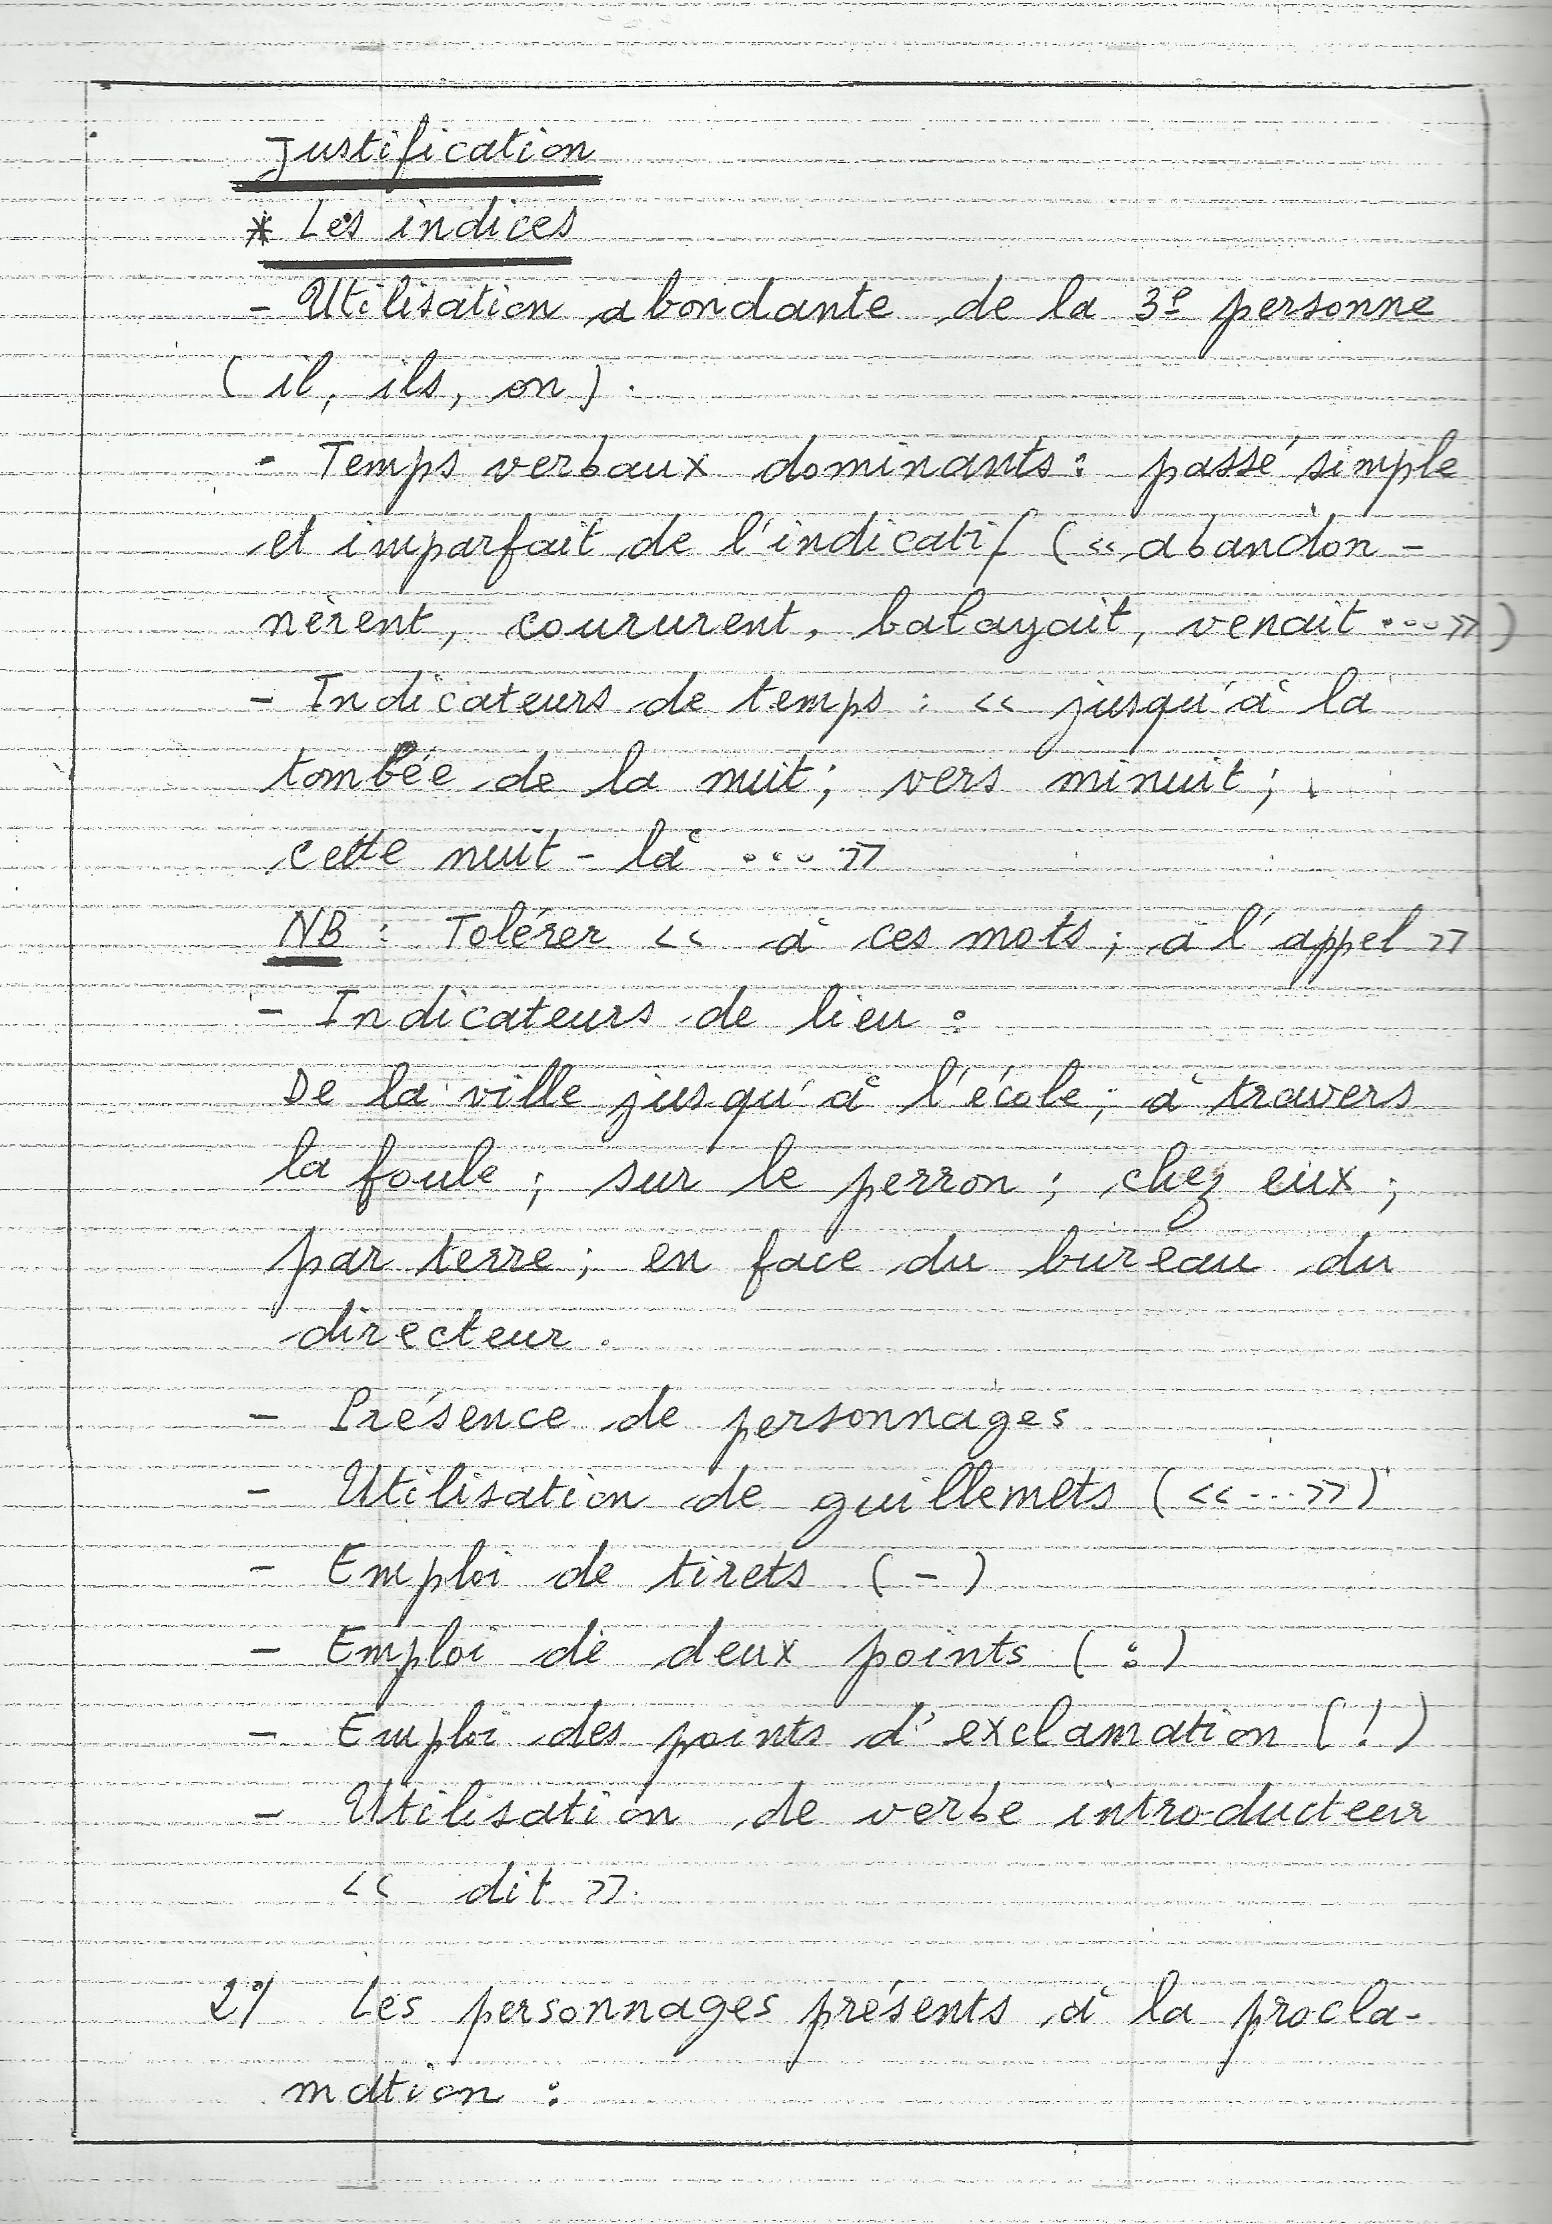 Justification
* Les indices
- Utilisation abondante de la 3e personne
( il, ils, on ).
- Temps verbaux dominants : passé simple
et imparfait de l'indicatif (« abandon-
nèrent, coururent, balayait, venait ...»)
- Indicateurs de temps : « jusqu'à la
tombée de la nuit ; vers minuit ;
cette nuit-là ... »
NB : Tolérer « à ces mots ; à l'appel »
- Indicateurs de lieu :
De la ville jusqu'à l'école ; à travers
la foule ; sur le perron ; chez eux ;
par terre ; en face du bureau du
directeur.
- Présence de personnages
- Utilisation de guillemets (« ... »)
- Emploi de tirets ( - )
- Emploi de deux points ( : )
- Emploi des points d'exclamation ( ! )
- Utilisation de verbe introducteur
« dit ».
2°/ Les personnages présents à la procla-
mation :